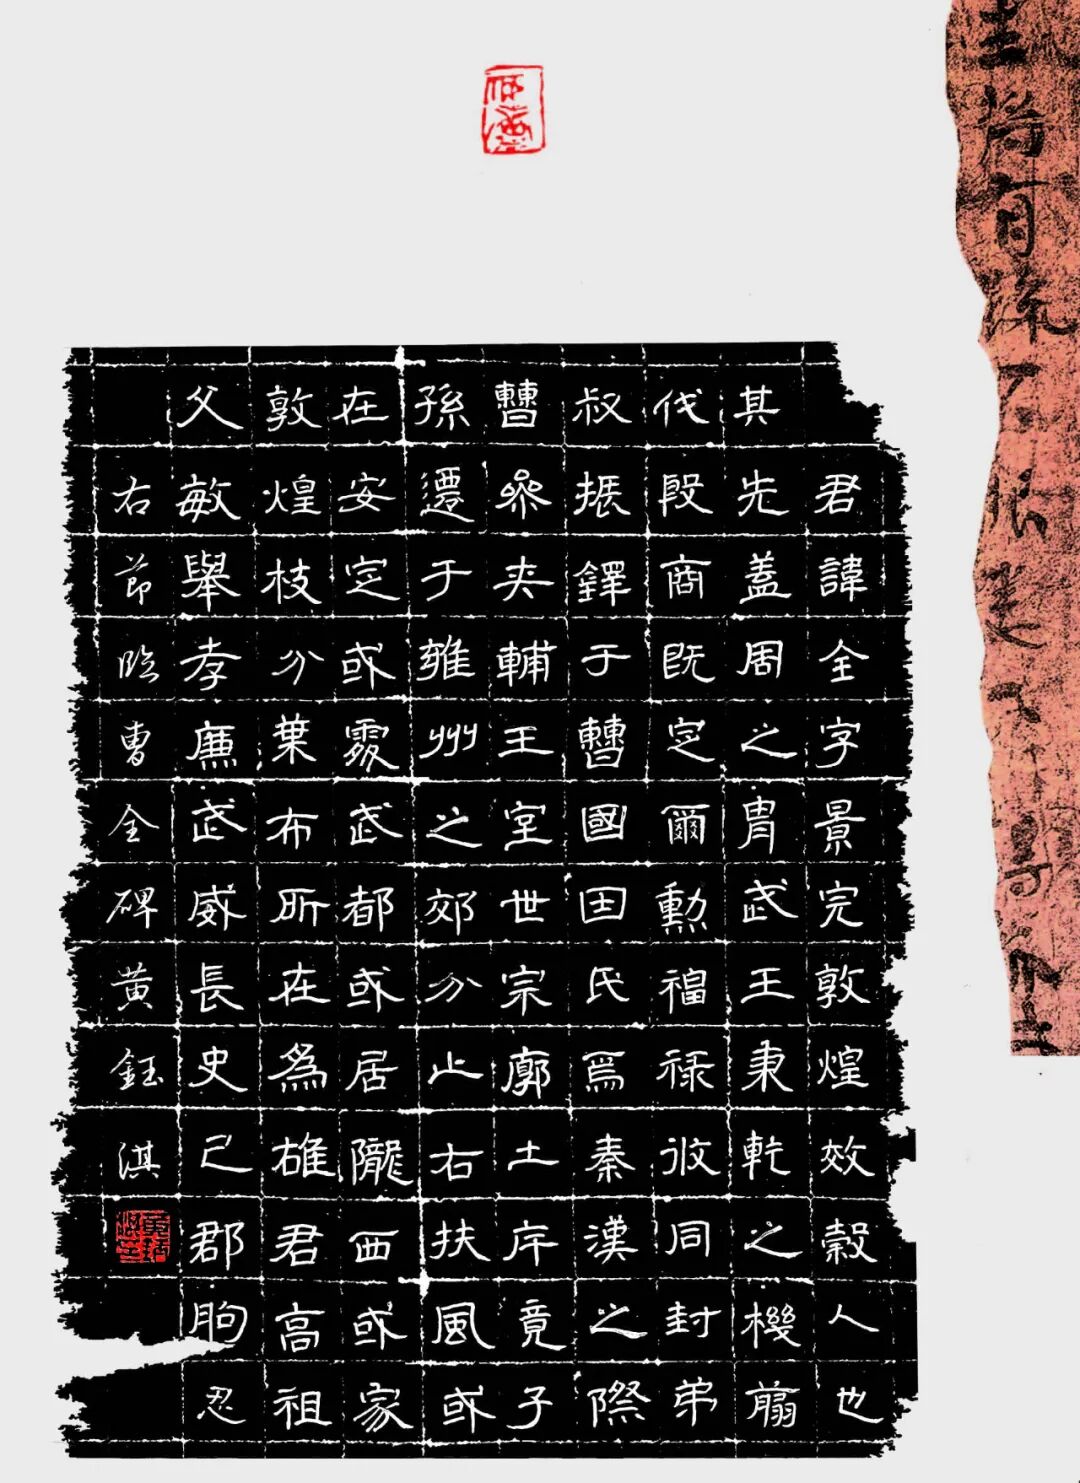 君諱全字景完敦煌效穀人也
其先蓋周之胄武王秉乾之機翦
伐殷商既定爾勳福祿攸同封弟
叔振鐸于曹國因氏焉秦漢之際
曹參夾輔王室世宗廓土斥竟子
孫遷于雍州之郊分止右扶風或
在安定或處武都或居隴西或家
敦煌枝分葉布所在為雄君高祖
父敏舉孝廉武威長史巴郡朐忍
右節臨曹全碑黃鈺淇